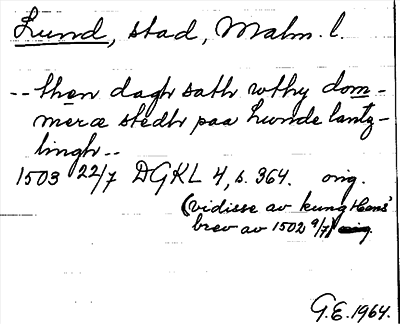 Lund, stad, Malm. l.
-- then dagh sath wthy dom-
meræ stedh paa lunde lantz-
tingh --
1503 22/7 DGKL 4, s. 364. orig.
(vidisse av kung Hans'
brev av 1502 9/7)
G.E. 1964.